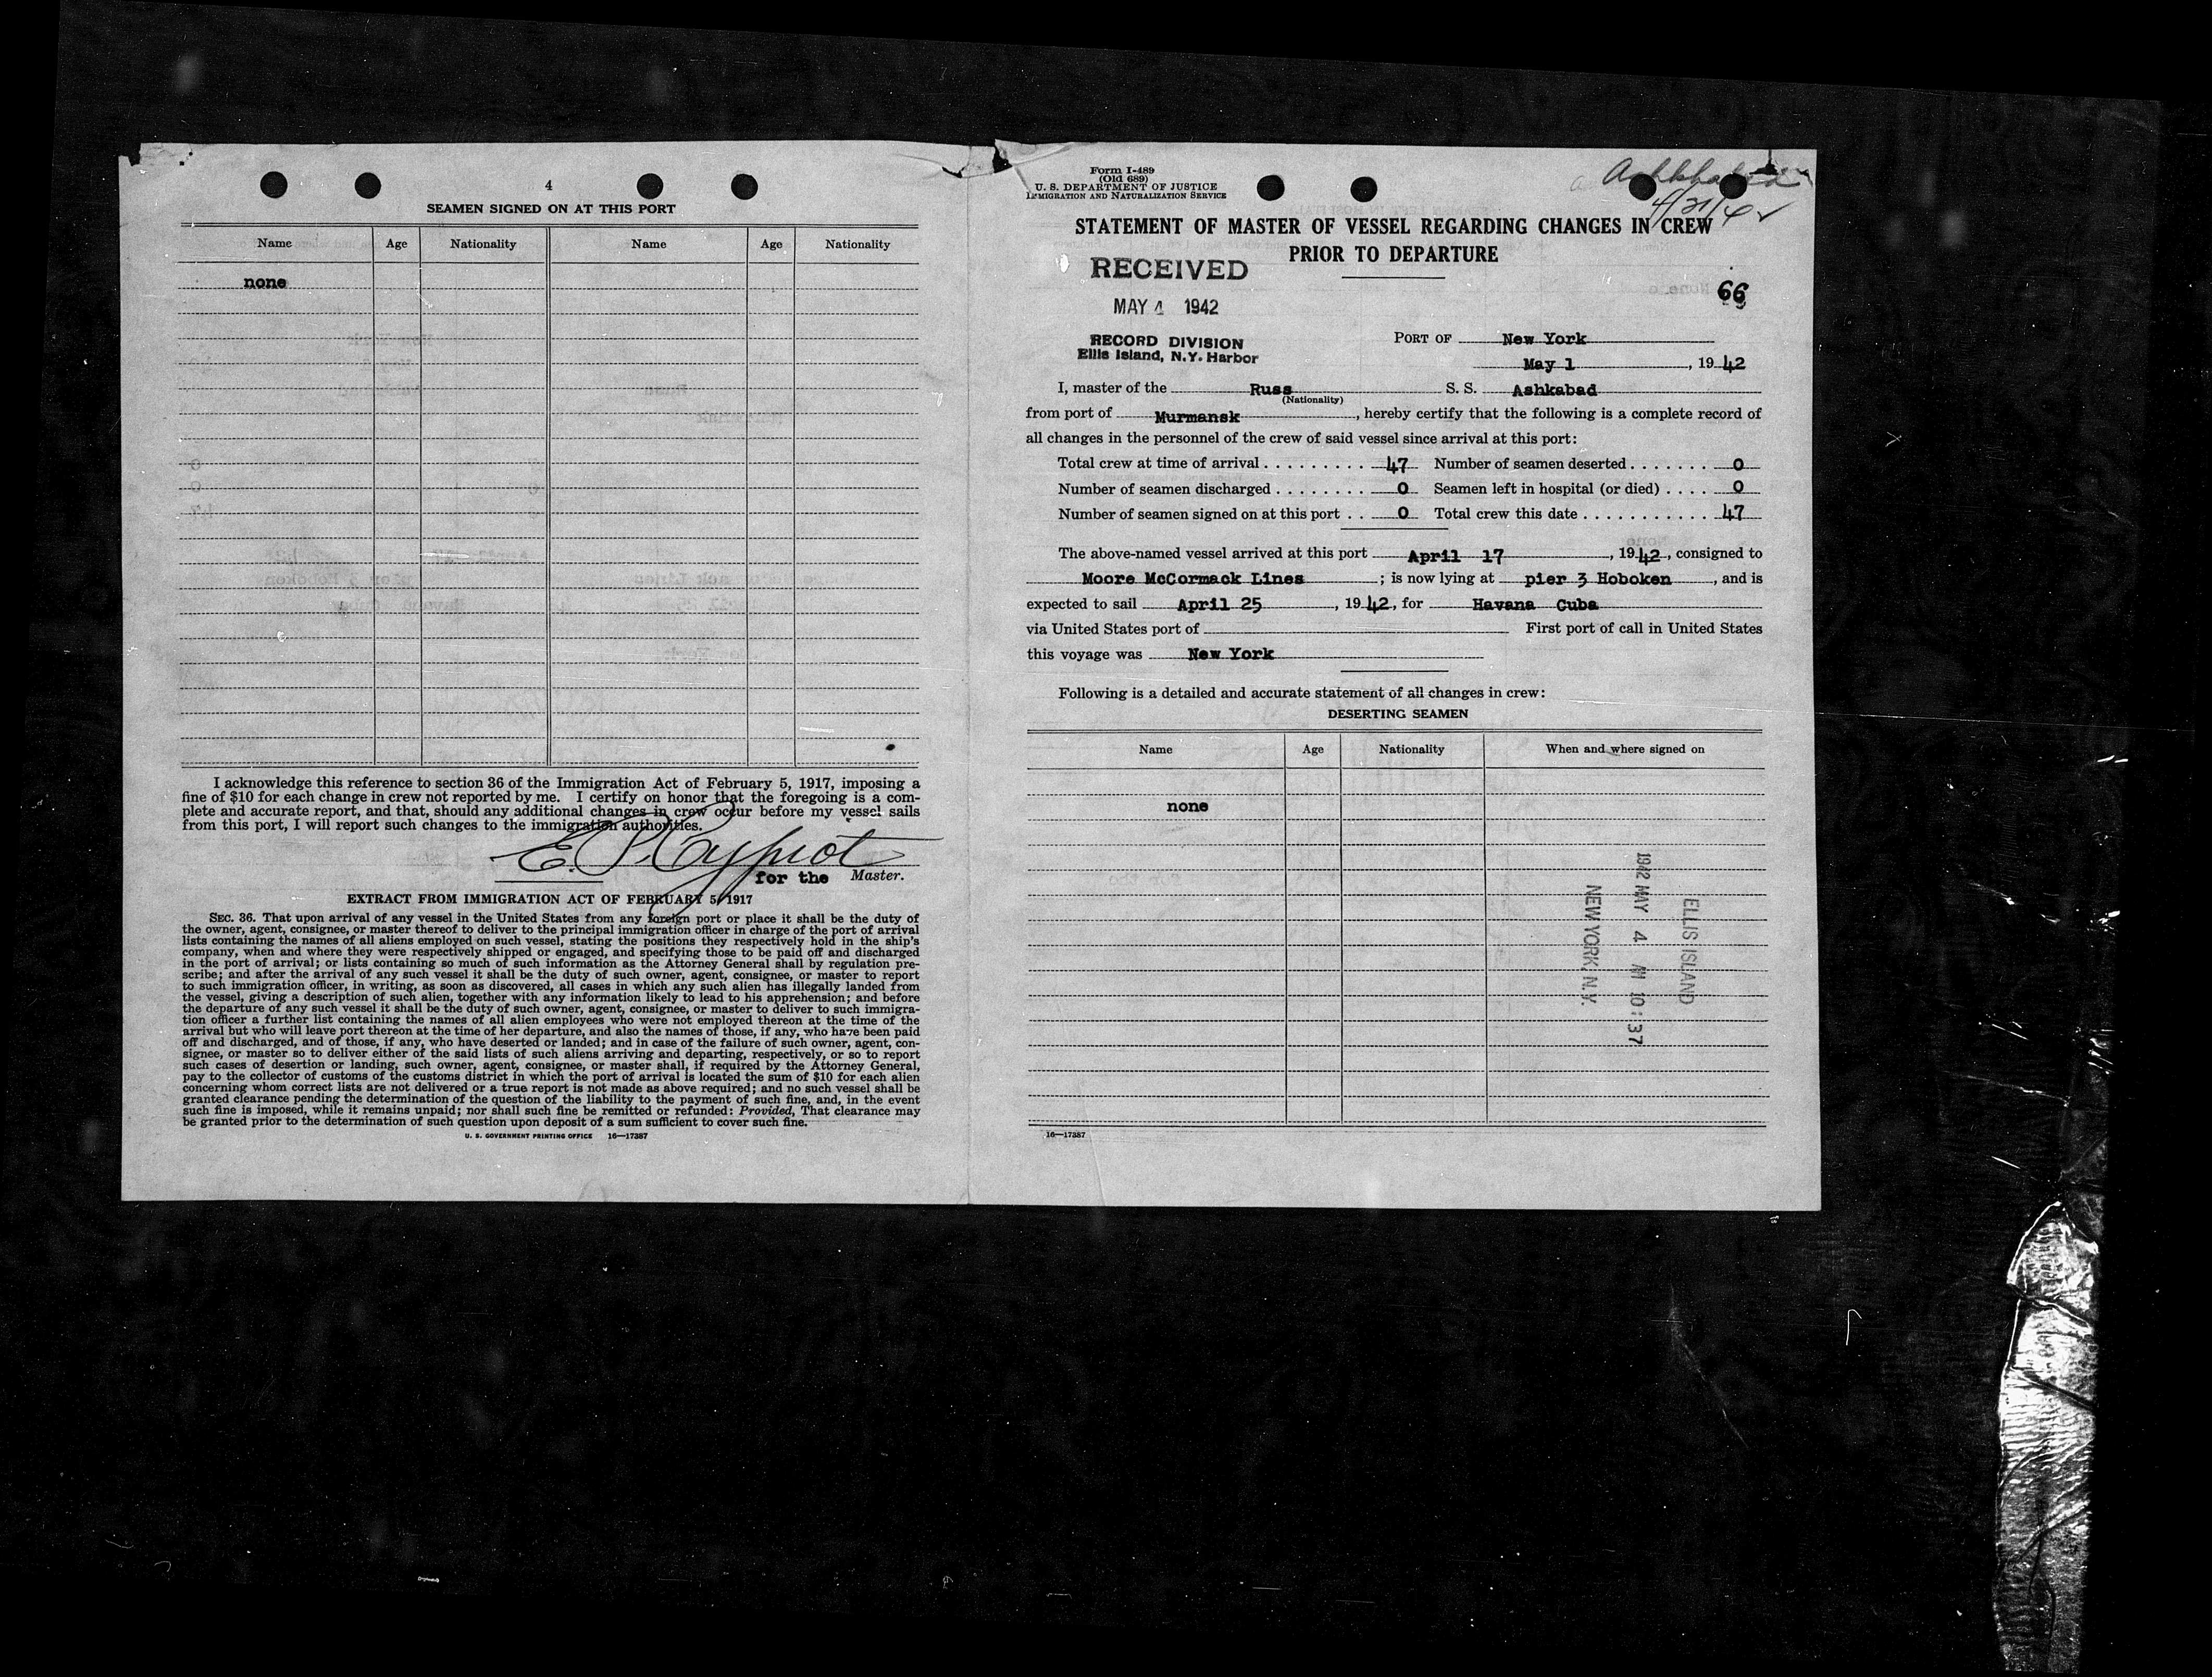 4
SEAMEN SIGNED ON AT THIS PORT
Name Age Nationality Name Age Nationality
none
I acknowledge this reference to section 36 of the Immigration Act of February 5, 1917, imposing a
fine of $10 for each change in crew not reported by me. I certify on honor that the foregoing is a com-
plete and accurate report, and that, should any additional changes in crew occur before my vessel sails
from this port, I will report such changes to the immigration authorities.
for the Master.
EXTRACT FROM IMMIGRATION ACT OF FEBRUARY 5, 1917
SEC. 36. That upon arrival of any vessel in the United States from any foreign port or place it shall be the duty of
the owner, agent, consignee, or master thereof to deliver to the principal immigration officer in charge of the port of arrival
lists containing the names of all aliens employed on such vessel, stating the positions they respectively hold in the ship's
company, when and where they were respectively shipped or engaged, and specifying those to be paid off and discharged
in the port of arrival; or lists containing so much of such information as the Attorney General shall by regulation pre-
scribe; and after the arrival of any such vessel it shall be the duty of such owner, agent, consignee, or master to report
to such immigration officer, in writing, as soon as discovered, all cases in which any such alien has illegally landed from
the vessel, giving a description of such alien, together with any information likely to lead to his apprehension; and before
the departure of any such vessel it shall be the duty of such owner, agent, consignee, or master to deliver to such immigra-
tion officer a further list containing the names of all alien employees who were not employed thereon at the time of the
arrival but who will leave port thereon at the time of her departure, and also the names of those, if any, who have been paid
off and discharged, and of those, if any, who have deserted or landed; and in case of the failure of such owner, agent, con-
signee, or master so to deliver either of the said lists of such aliens arriving and departing, respectively, or so to report
such cases of desertion or landing, such owner, agent, consignee, or master shall, if required by the Attorney General,
pay to the collector of customs of the customs district in which the port of arrival is located the sum of $10 for each alien
concerning whom correct lists are not delivered or a true report is not made as above required; and no such vessel shall be
granted clearance pending the determination of the question of the liability to the payment of such fine, and, in the event
such fine is imposed, while it remains unpaid; nor shall such fine be remitted or refunded: Provided, That clearance may
be granted prior to the determination of such question upon deposit of a sum sufficient to cover such fine.
U. S. GOVERNMENT PRINTING OFFICE 16—17387
Form I-489
(Old 689)
U. S. DEPARTMENT OF JUSTICE
IMMIGRATION AND NATURALIZATION SERVICE
Ashkhabad
STATEMENT OF MASTER OF VESSEL REGARDING CHANGES IN CREW
PRIOR TO DEPARTURE
RECEIVED
MAY 4 1942
RECORD DIVISION
Ellis Island, N.Y. Harbor
66
PORT OF New York
May 1, 1942
I, master of the Russ S. S. Ashkabad
(Nationality)
from port of Murmansk, hereby certify that the following is a complete record of
all changes in the personnel of the crew of said vessel since arrival at this port:
Total crew at time of arrival . . . . . . . . . 47 Number of seamen deserted . . . . . . . 0
Number of seamen discharged . . . . . . . . 0 Seamen left in hospital (or died) . . . . 0
Number of seamen signed on at this port . . 0 Total crew this date . . . . . . . . . . . . 47
The above-named vessel arrived at this port April 17, 1942, consigned to
Moore McCormack Lines; is now lying at pier 3 Hoboken, and is
expected to sail April 25, 1942, for Havana Cuba
via United States port of First port of call in United States
this voyage was New York
Following is a detailed and accurate statement of all changes in crew:
DESERTING SEAMEN
Name Age Nationality When and where signed on
none
ELLIS ISLAND
1942 MAY 4 AM 10:37
NEW YORK, N.Y.
16—17387